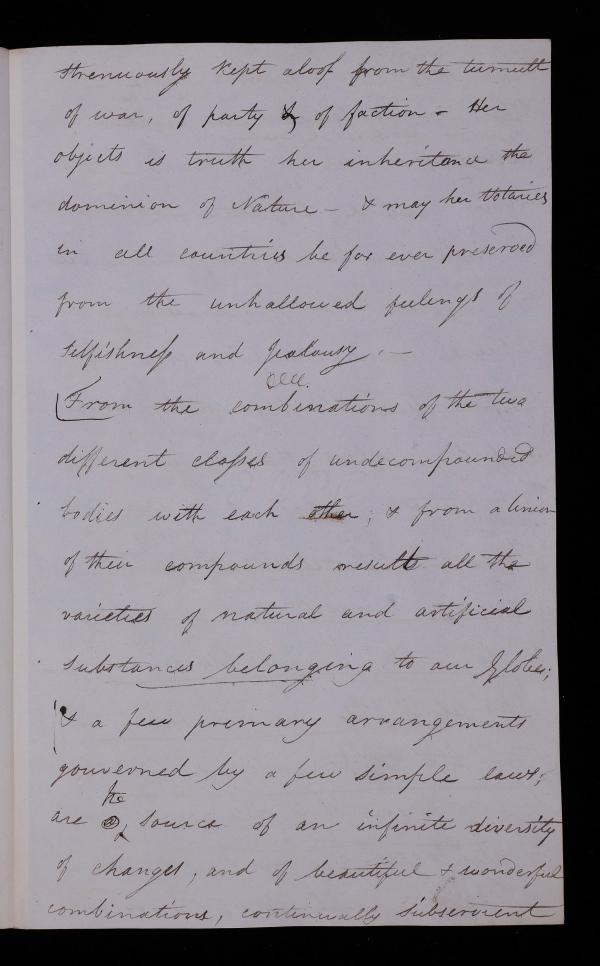 strenuously kept aloof from the tumult
of war, of party & of faction - Her
objects is truth her inheritance the
dominion of Nature - & may her Votaries
in all countries be for ever preserved
from the unhallowed feelings of
selfishness and jealousy. -
From the combinations of the two
different classes of undecompounded
bodies with each other; & from a Union
of their compounds result all the
varieties of natural and artificial
substances belonging to our Globe;
& a few primary arrangements
gouverned by a few simple laws;
the
are source of an infinite diversity
of changes, and of beautiful & wonderful
combinations, continually subservient